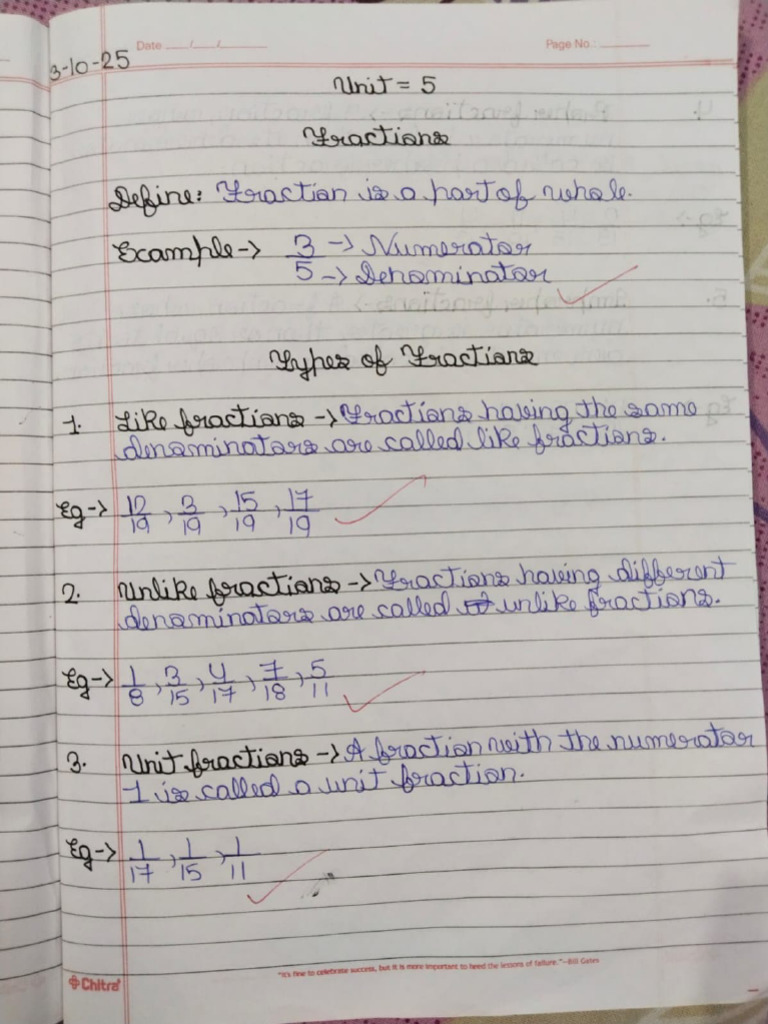 Date __/__/__ Page No.:
3-10-25
Unit = 5
Fractions
Define: Fraction is a part of whole.
Example-> 3/5 -> Numerator
-> Denominator
Types of Fractions
1. Like fractions -> Fractions having the same
denominators are called like fractions.
Eg-> 12/19, 3/19, 15/19, 17/19
2. Unlike fractions -> Fractions having different
denominators are called unlike fractions.
Eg-> 1/8, 3/15, 4/17, 7/18, 5/11
3. Unit fractions -> A fraction with the numerator
1 is called a unit fraction.
Eg-> 1/17, 1/15, 1/11
"It's fine to celebrate success, but it is more important to heed the lessons of failure."-Bill Gates
Chitra